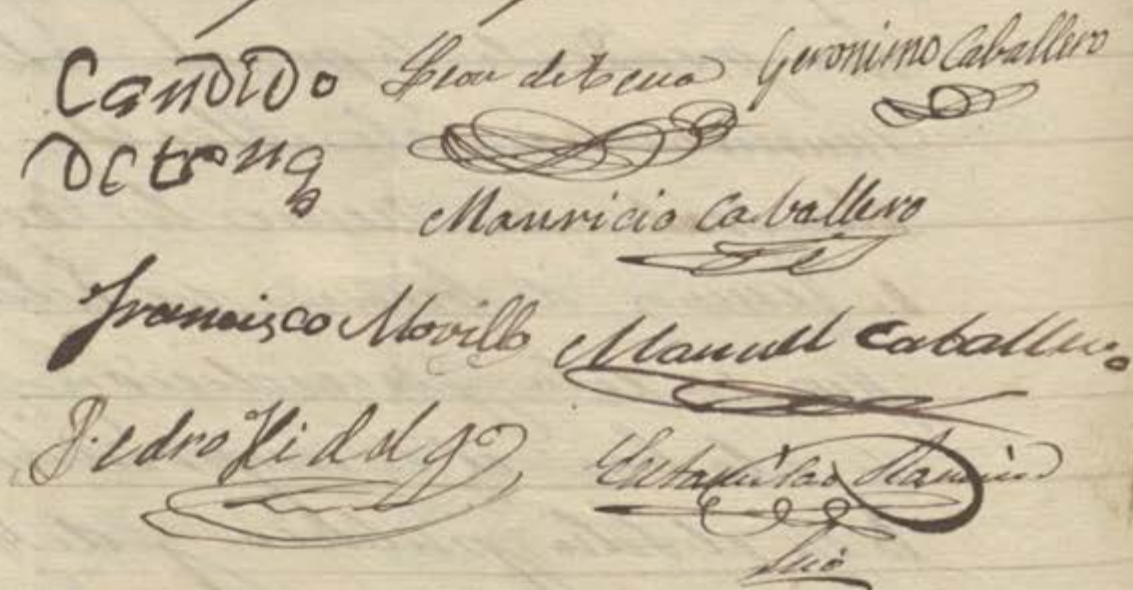 Candido
Leon de Tena
Geronimo Caballero
Mauricio Caballero
Francisco Morillo
Manuel Caballero
Pedro Hidalgo
Estanislao Ramirez
Srio